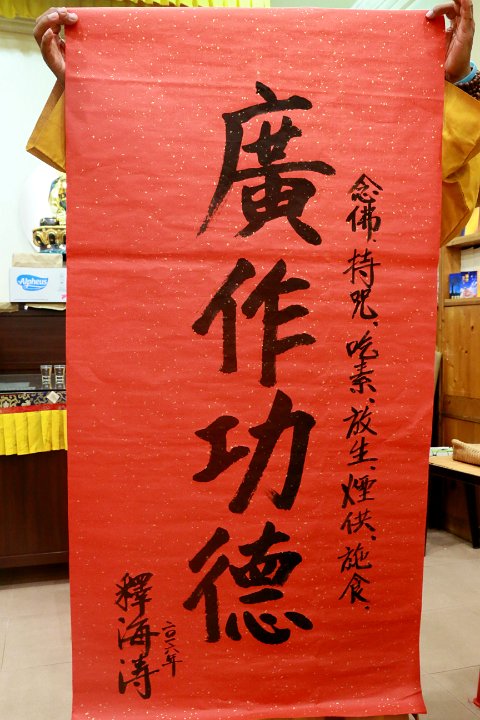 念佛、持咒、吃素、放生、煙供、施食、
廣作功德
二〇一六年
釋海濤
Alpheus